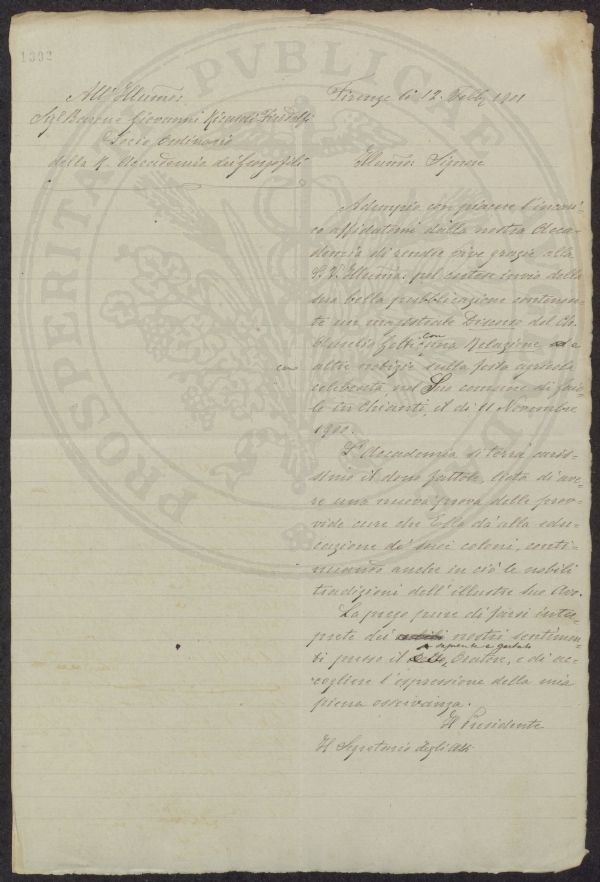 1392
PROSPERITATI PVBLICAE
All' Illumo:
Sig.r Barone Giovanni Ricasoli Firidolfi
Socio Ordinario
della R. Accademia dei Georgofili
Firenze li 12. 1901
Illumo: Signore
Adempio con piacere l'incari-
co affidatomi dalla nostra Acca-
demia di rendere vive grazie alla
S. V. Illumа: pel cortese invio della
sua bella pubblicazione contenen-
te un magistrale Discorso del Ch.
con
una Relazione e
altre notizie sulla festa agricola
celebrata nel Suo comune di Gaio-
le in Chianti, il dì 11 Novembre
1900.
L'Accademia si terrà caris-
simo il dono fattole, lieta di ave-
re una nuova prova delle prov-
vide cure che Ella dà alla edu-
cazione de' suoi coloni, conti-
nuando anche in ciò le nobili
tradizioni dell'illustre Suo Avo.
La prego pure di farsi inter-
prete dei nostri sentimen-
sapiente e garbato
ti presso il Oratore, e di ac-
cogliere l'espressione della mia
piena osservanza.
Il Presidente
Il Segretario degli Atti